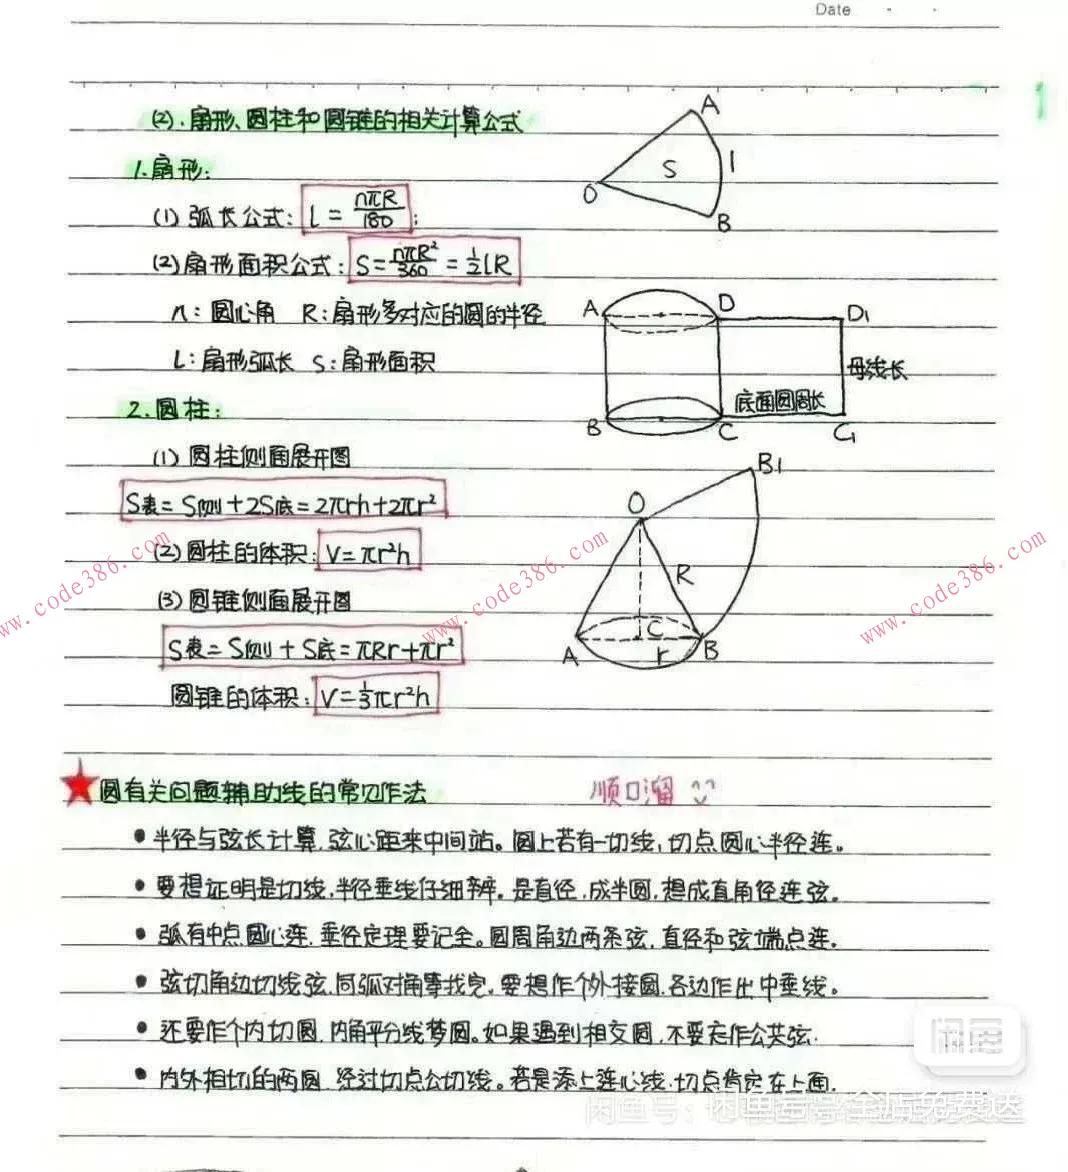 Date
(2). 扇形、圆柱和圆锥的相关计算公式
1. 扇形:
(1) 弧长公式: l = nπR/180;
(2) 扇形面积公式: S = nπR²/360 = ½lR
n: 圆心角 R: 扇形多对应的圆的半径
L: 扇形弧长 S: 扇形面积
2. 圆柱:
(1) 圆柱侧面展开图
S表 = S侧 + 2S底 = 2πrh + 2πr²
(2) 圆柱的体积: V = πr²h
(3) 圆锥侧面展开图
S表 = S侧 + S底 = πRr + πr²
圆锥的体积: V = ⅓πr²h
A
S
l
O
B
A
D
D1
母线长
底面圆周长
B
C
C1
B1
O
R
C
A
r
B
圆有关问题辅助线的常见作法
顺口溜
• 半径与弦长计算,弦心距来中间站。圆上若有一切线,切点圆心半径连。
• 要想证明是切线,半径垂线仔细辨。是直径,成半圆,想成直角径连弦。
• 弧有中点圆心连,垂径定理要记全。圆周角边两条弦,直径和弦端点连。
• 弦切角边切线弦,同弧对角等找完。要想作个外接圆,各边作出中垂线。
• 还要作个内切圆,内角平分线梦圆。如果遇到相交圆,不要忘作公共弦.
• 内外相切的两圆,经过切点公切线。若是添上连心线,切点肯定在上面.
www.code386.com
www.code386.com
www.code386.com
闲鱼
闲鱼号: